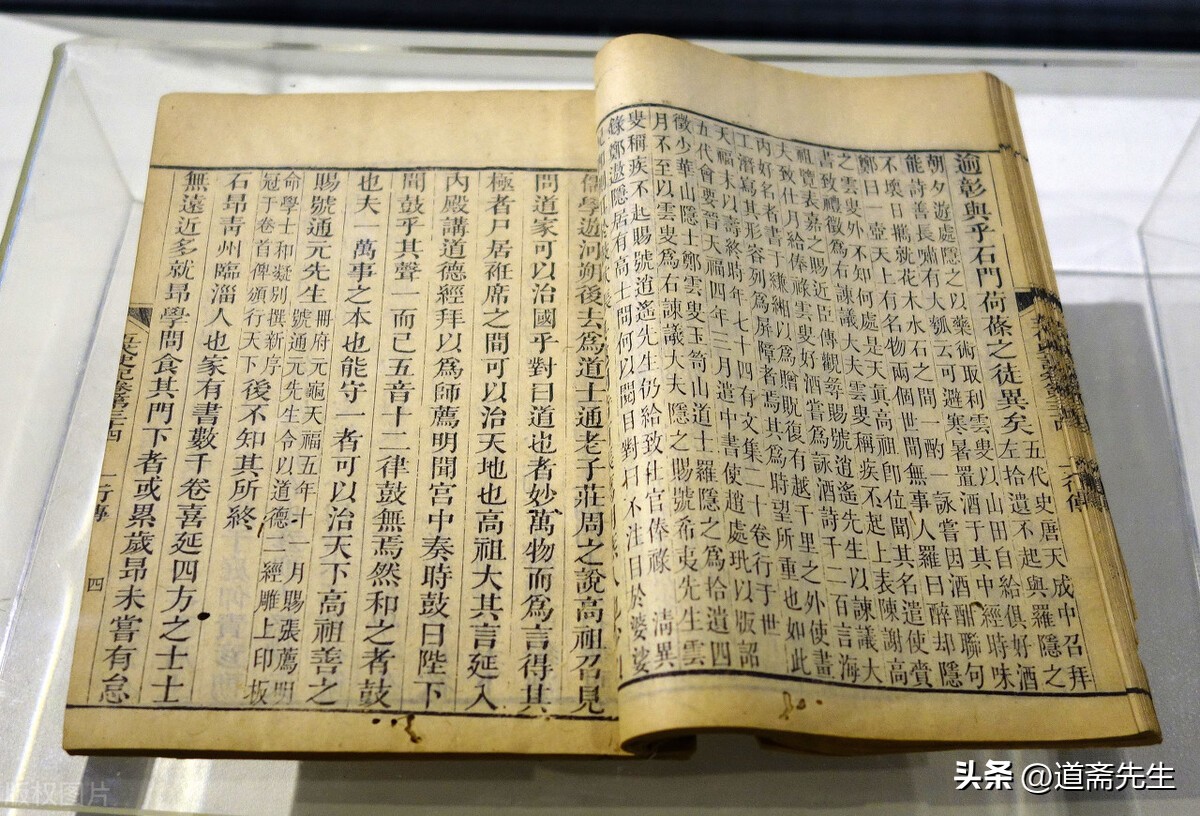 逾彰與乎石門荷蓧之徒異矣
五代史唐天成中召拜
左拾遺不起與羅隱之
朝夕遊處隱之以藥術取利雲叟以山田自給俱好酒
能詩善長嘯有大瓢云可避寒暑置酒于其中經時味
不壞日攜就花木水石之間一酌一詠嘗因酒酣聯句
鄭曰一壺天上有名物兩個世間無事人羅曰醉却隱
之雲叟外不知何處是天眞高祖卽位聞其名遣使賞
書致禮徵爲右諫議大夫雲叟稱疾不起上表陳謝高
祖覽表嘉之賜近臣傳觀尋賜號逍遙先生以諫議大
夫致仕月給俸祿雲叟好酒嘗爲詠酒詩千二百言海
內好名者書于縑緗以爲贈貺復有越千里之外使畫
工潛寫其形容列爲屏障者焉其爲時望所重也如此
天福末以壽終時年七十四有文集二十卷行于世
五代會要晉天福四年二月遣中書使趙處玭以版詔
徵少華山隱士鄭雲叟玉笥山道士羅隱之爲拾遺四
月不至以雲叟爲右諫議大夫隱之賜號希夷先生雲
叟稱疾不起賜號逍遙先生仍給致仕官俸祿 清異
錄鄭遨隱居有高士問何以閱目對曰不注目於婆娑
儒學遊河朔後去爲道士通老子莊周之說高祖召見
問道家可以治國乎對曰道也者妙萬物而爲言得其
極者尸居衽席之間可以治天地也高祖大其言延入
內殿講道德經拜以爲師薦明聞宮中奏時鼓曰陛下
聞鼓乎其聲一而已五音十二律鼓無焉然和之者鼓
也夫一萬事之本也能守一者可以治天下高祖善之
賜號通元先生
冊府元龜天福五年十一月賜張薦明
號通元先生令以道德二經雕上印板
命學士和凝別撰新序
冠于卷首俾頒行天下
後不知其所終
石昂靑州臨淄人也家有書數千卷喜延四方之士士
無遠近多就昂學問食其門下者或累歲昂未嘗有怠
四
头条 @道斋先生
版权图片